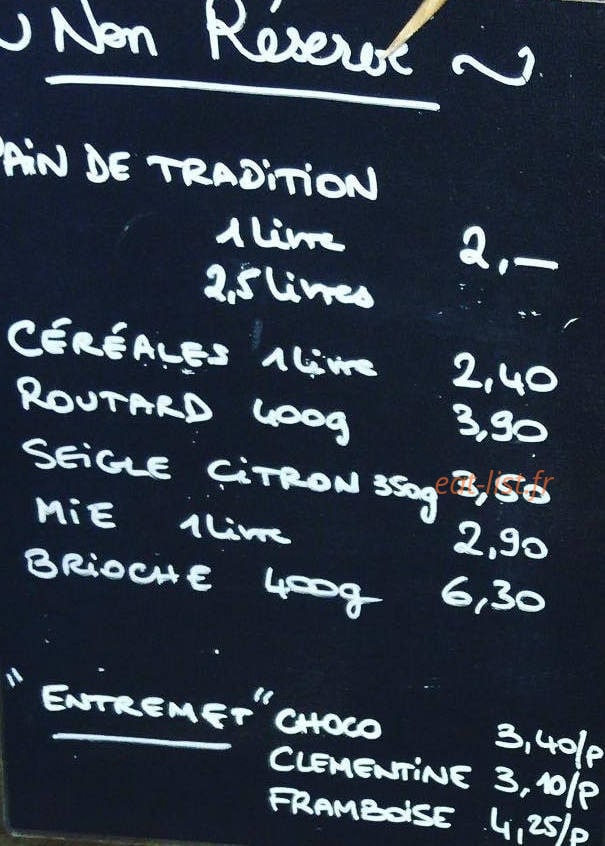 Non Réserve
AIN DE TRADITION
1 Livre 2,—
2,5 Livres
CÉRÉALES 1 Livre 2,40
ROUTARD 400g 3,90
SEIGLE CITRON 350g
eat-list.fr
MIE 1 Livre 2,90
BRIOCHE 400g 6,30
"ENTREMET" CHOCO 3,40/P
CLEMENTINE 3,10/P
FRAMBOISE 4,25/P